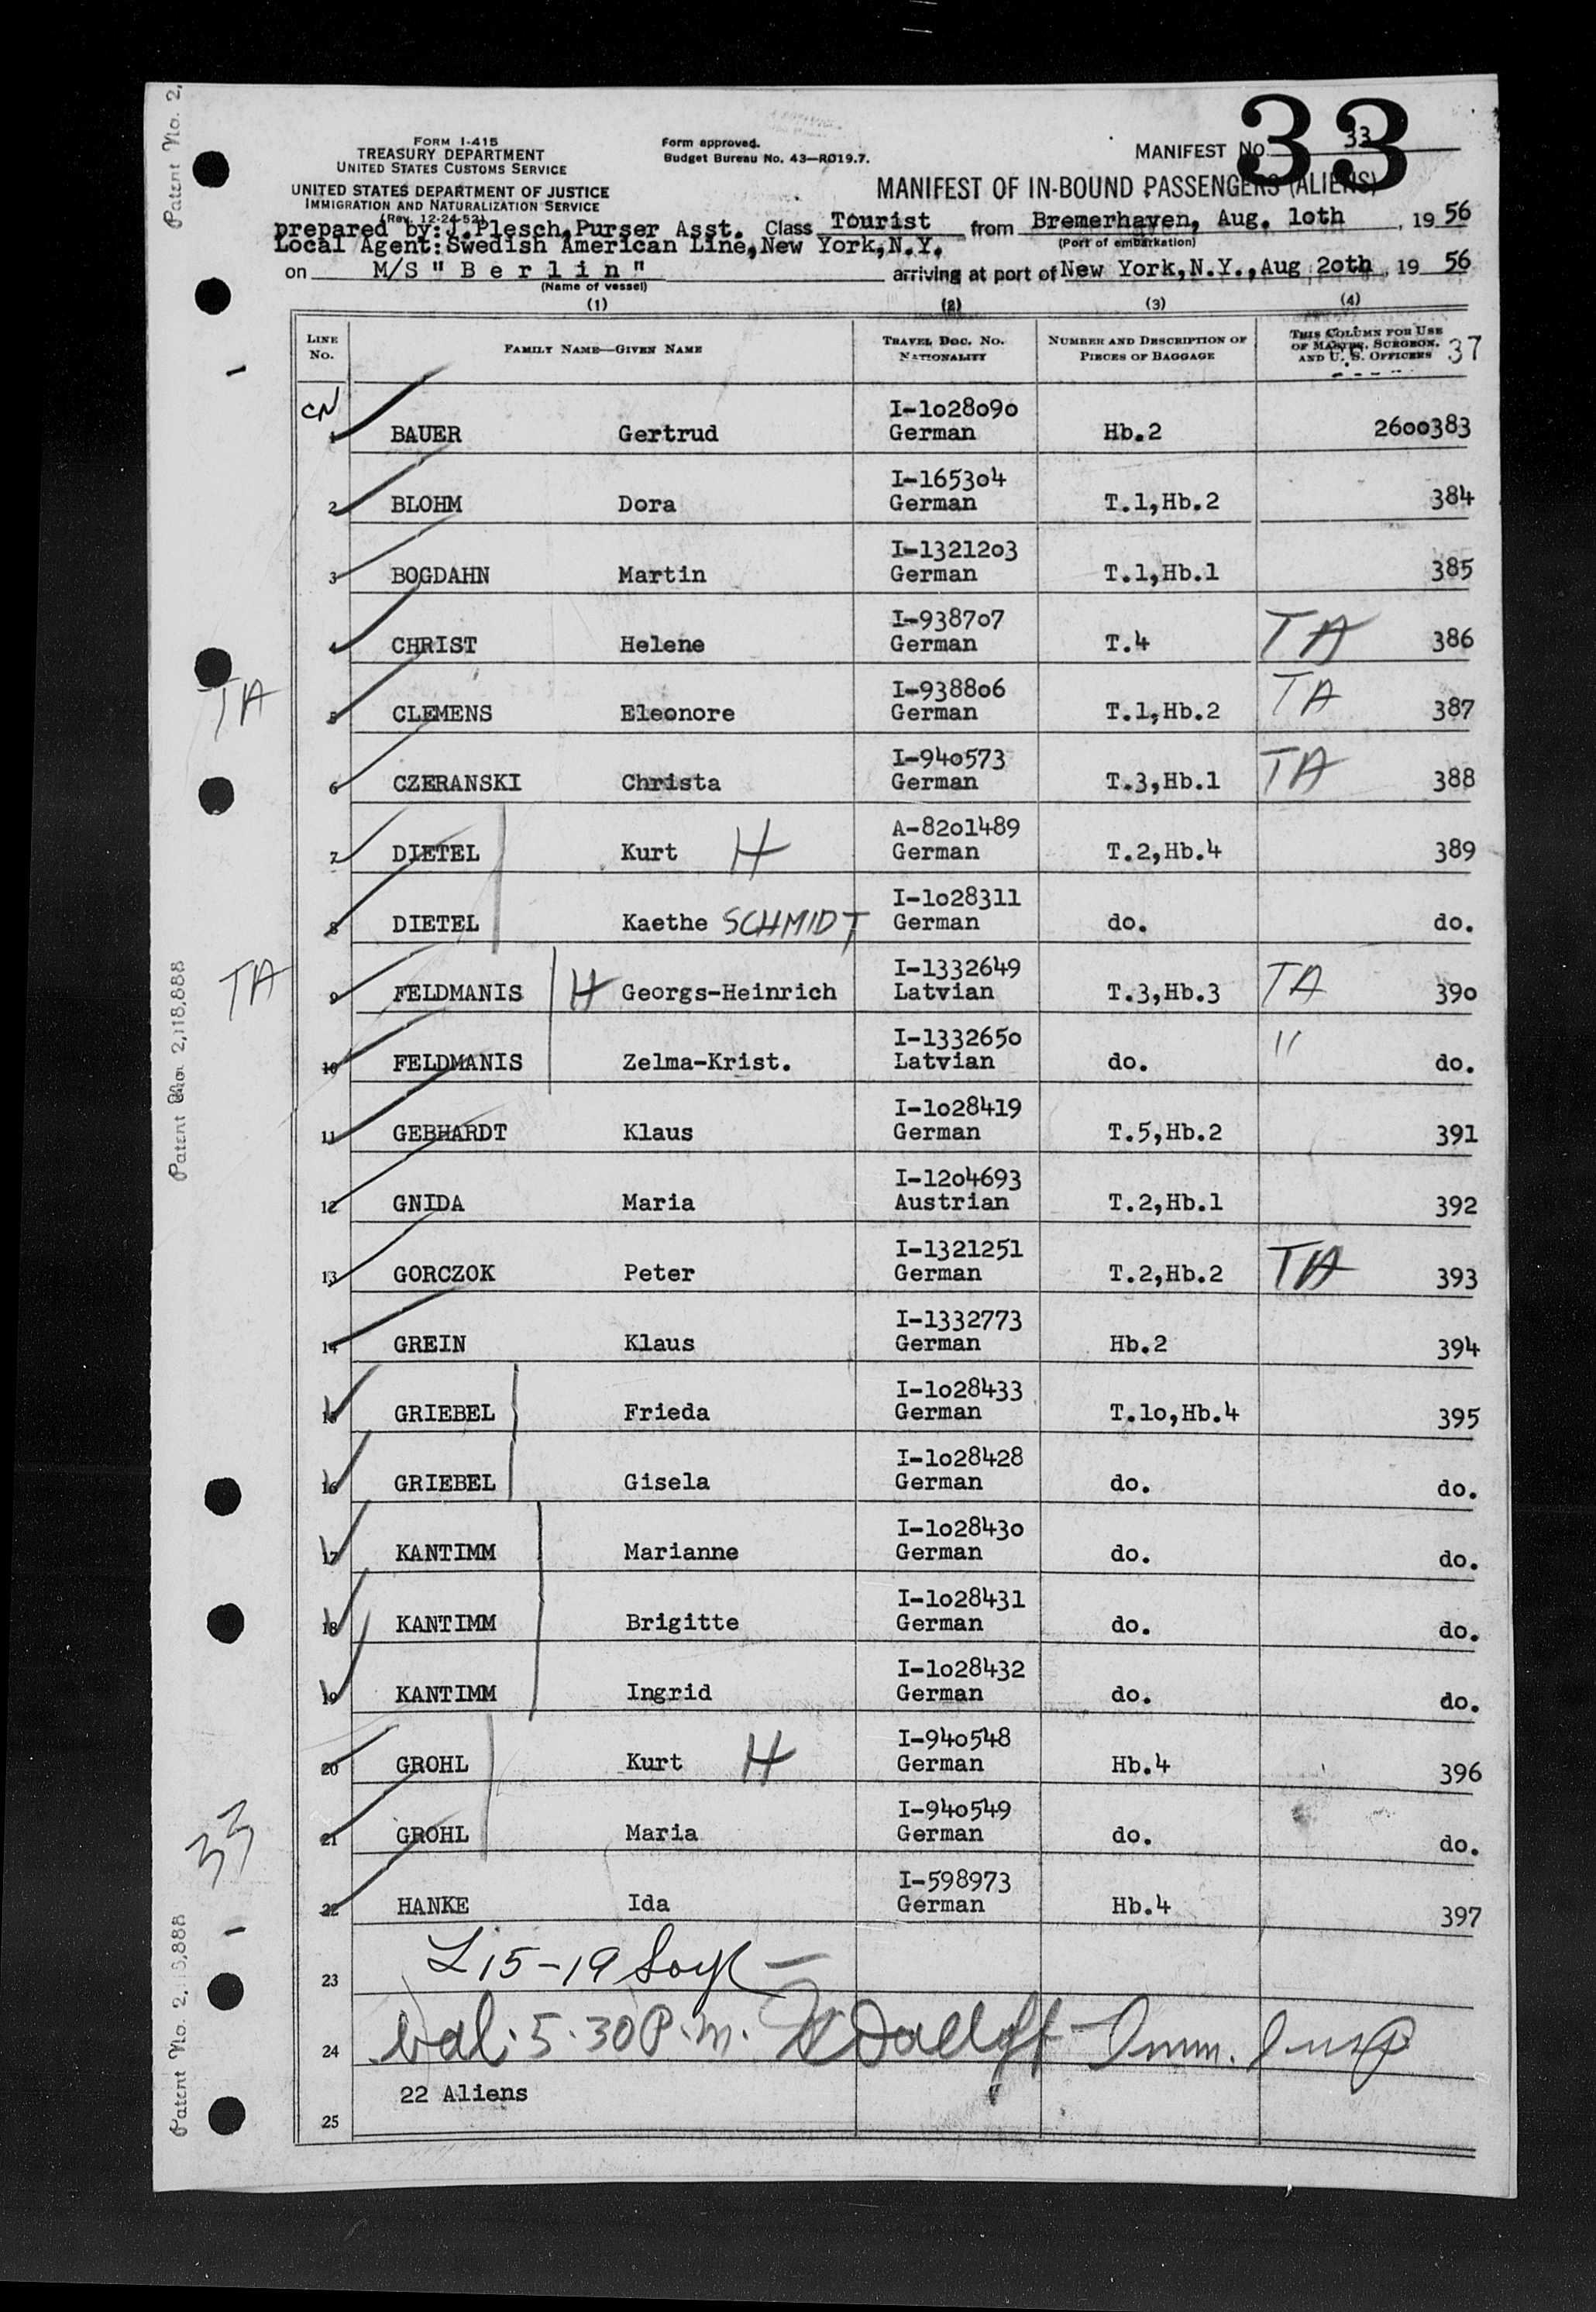 33
FORM I-415
TREASURY DEPARTMENT
UNITED STATES CUSTOMS SERVICE
UNITED STATES DEPARTMENT OF JUSTICE
IMMIGRATION AND NATURALIZATION SERVICE
(Rev. 12-24-52)
Form approved.
Budget Bureau No. 43—RO19.7.
MANIFEST No. 33
MANIFEST OF IN-BOUND PASSENGERS (ALIENS)
prepared by:J.Plesch,Purser Asst. Class Tourist from Bremerhaven, Aug. 1oth, 1956
(Port of embarkation)
Local Agent:Swedish American Line,New York,N.Y.
on M/S "Berlin" arriving at port of New York,N.Y.,Aug 2oth, 1956
(Name of vessel)
(1) (2) (3) (4)
LINE No. FAMILY NAME—GIVEN NAME TRAVEL DOC. No. NATIONALITY NUMBER AND DESCRIPTION OF PIECES OF BAGGAGE THIS COLUMN FOR USE OF MASTER, SURGEON, AND U. S. OFFICERS 37
CN
I-1o28o9o
1 BAUER Gertrud German Hb.2 26oo383
I-1653o4
2 BLOHM Dora German T.1,Hb.2 384
I-13212o3
3 BOGDAHN Martin German T.1,Hb.1 385
I-9387o7
4 CHRIST Helene German T.4 TA 386
I-9388o6
TA 5 CLEMENS Eleonore German T.1,Hb.2 TA 387
I-94o573
6 CZERANSKI Christa German T.3,Hb.1 TA 388
A-82o1489
7 DIETEL Kurt H German T.2,Hb.4 389
I-1o28311
8 DIETEL Kaethe SCHMIDT German do. do.
I-1332649
TA 9 FELDMANIS H Georgs-Heinrich Latvian T.3,Hb.3 TA 39o
I-133265o
10 FELDMANIS Zelma-Krist. Latvian do. " do.
I-1o28419
11 GEBHARDT Klaus German T.5,Hb.2 391
I-12o4693
12 GNIDA Maria Austrian T.2,Hb.1 392
I-1321251
13 GORCZOK Peter German T.2,Hb.2 TA 393
I-1332773
14 GREIN Klaus German Hb.2 394
I-1o28433
15 GRIEBEL Frieda German T.1o,Hb.4 395
I-1o28428
16 GRIEBEL Gisela German do. do.
I-1o2843o
17 KANTIMM Marianne German do. do.
I-1o28431
18 KANTIMM Brigitte German do. do.
I-1o28432
19 KANTIMM Ingrid German do. do.
I-94o548
20 GROHL Kurt H German Hb.4 396
I-94o549
33 21 GROHL Maria German do. do.
I-598973
22 HANKE Ida German Hb.4 397
23 L 15-19
24 bal. 5.30 P.m. Imm. Insp
22 Aliens
25
Patent No. 2,
Patent No. 2,118,888
Patent No. 2,118,888